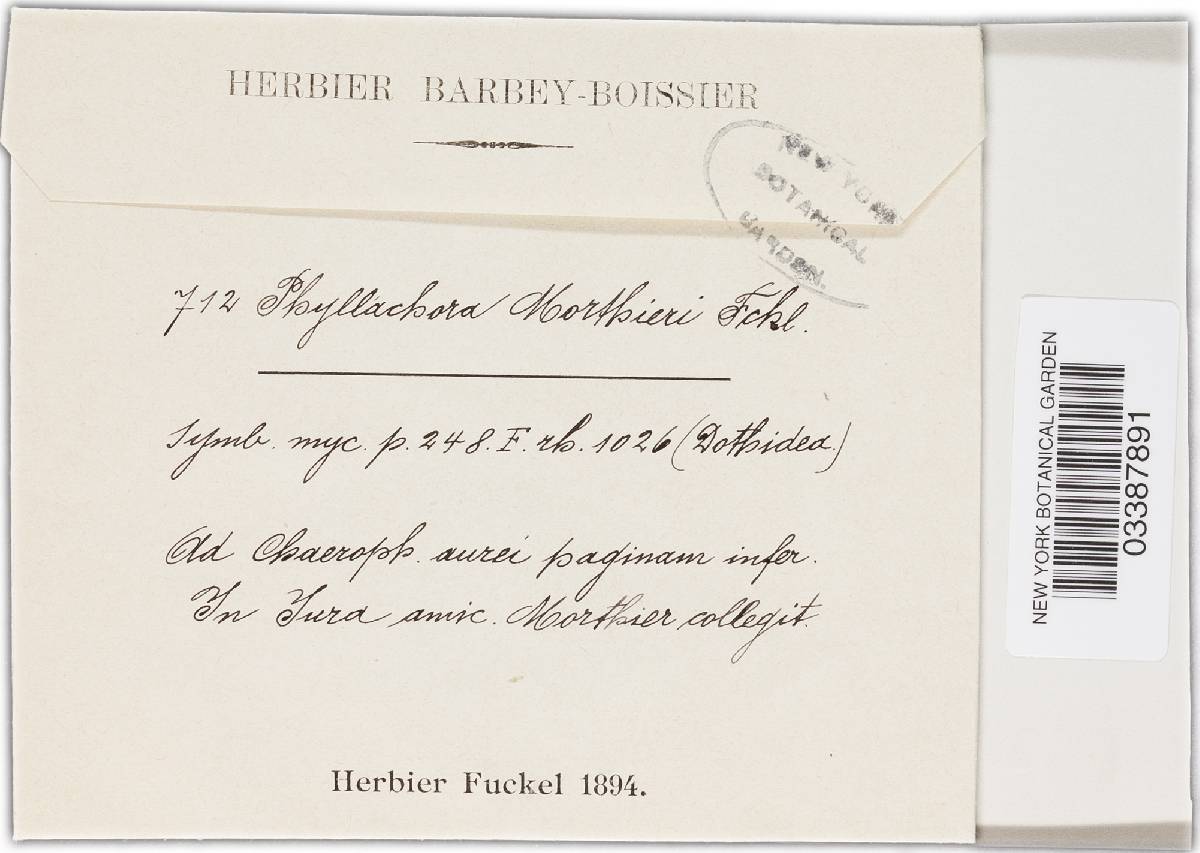 HERBIER BARBEY-BOISSIER
NEW YORK
BOTANICAL
GARDEN.
712 Phyllachora Morthieri Fckl.
Symb. myc. p. 248. F. rh. 1026 (Dothidea.)
Ad Chaeroph. aurei paginam infer.
In Jura amic. Morthier collegit.
Herbier Fuckel 1894.
NEW YORK BOTANICAL GARDEN
03387891